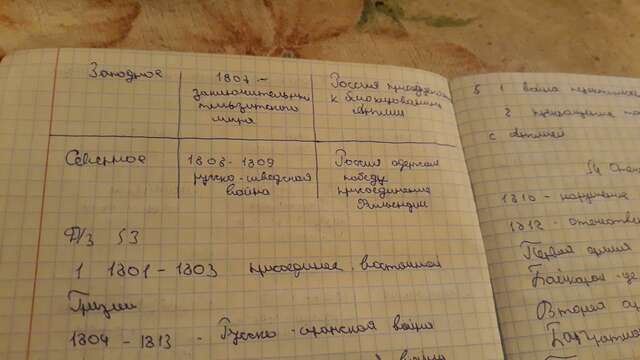 Западное
1807 -
заключительный
тильзитского
мира
Россия присоед
к блокированию
Англии
Северное
1808 - 1809
русско - шведская
война
Россия одержала
победу
присоединение
Финляндии
Д/З §3
1 1801 - 1803 присоединение восточной
Грузии
1804 - 1813 - Русско - иранская война
война
5 1 война
2 прекращение
с Англией
§4 Отеч
1810 - нарушение
1812 - отечестве
Первая армия
Вторая ар
Багратион